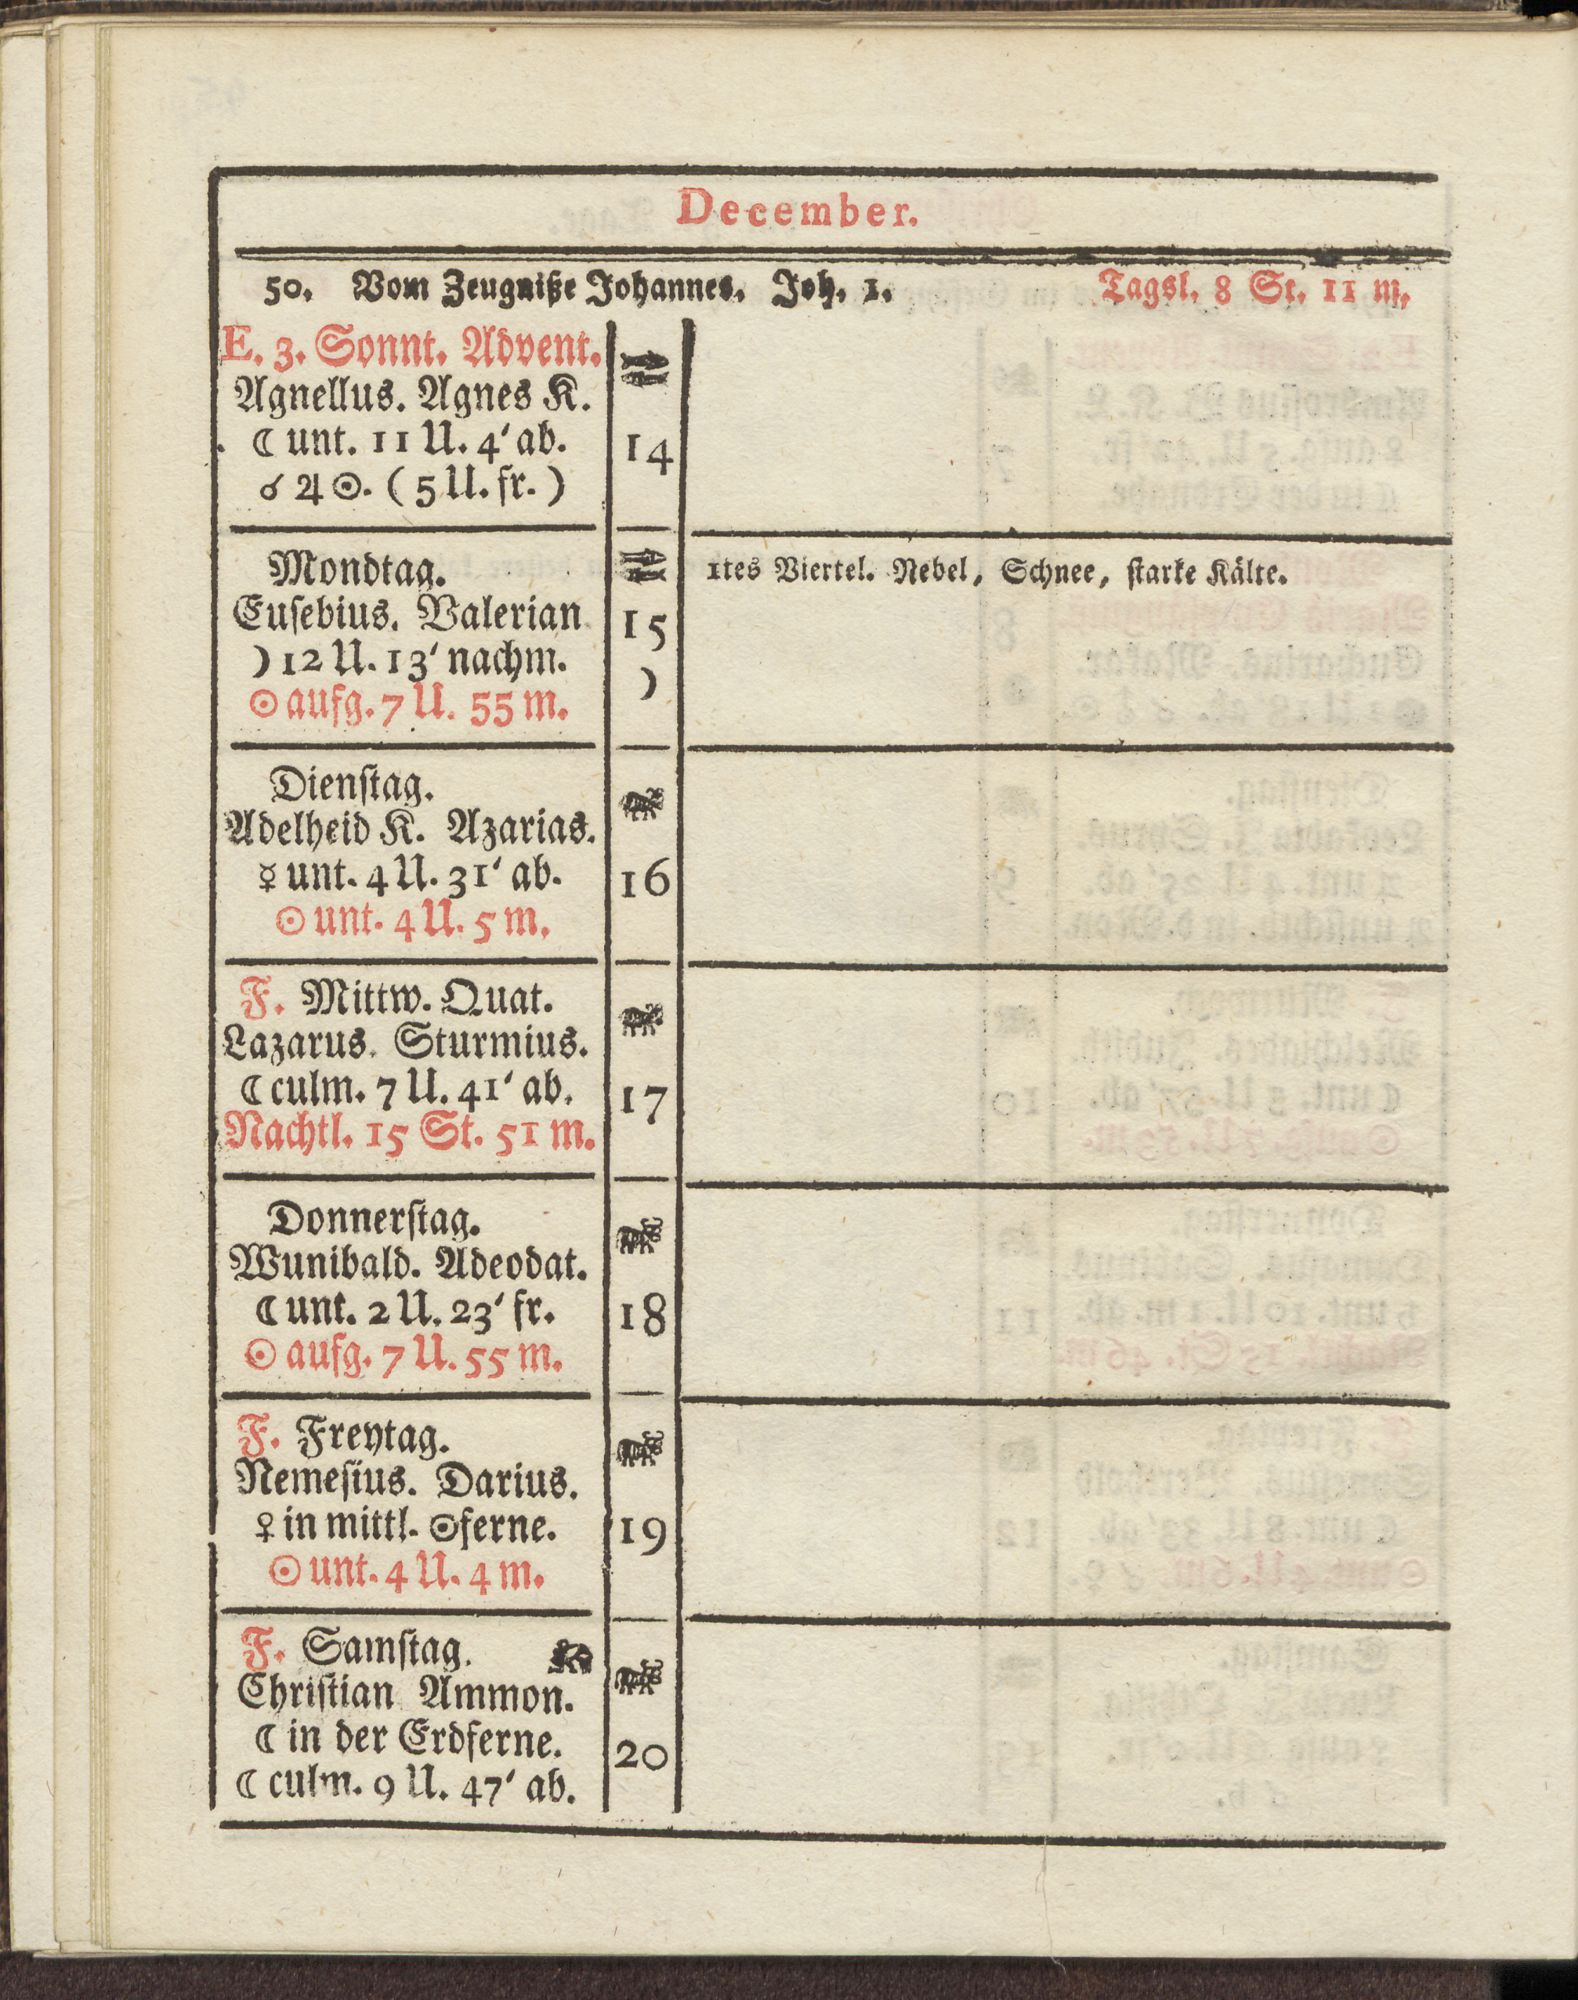 December.
50. Vom Zeugniße Johannes. Joh. 1. Tagsl. 8 St. 11 m.
E. 3. Sonnt. Advent.
Agnellus. Agnes K.
☾ unt. 11 U. 4' ab.
14
☌ ♃ ☉. (5 U. fr.)
Mondtag.
1tes Viertel. Nebel, Schnee, starke Kälte.
Eusebius. Valerian
15
) 12 U. 13' nachm.
)
☉ aufg. 7 U. 55 m.
Dienstag.
Adelheid K. Azarias.
☿ unt. 4 U. 31' ab.
16
☉ unt. 4 U. 5 m.
F. Mittw. Quat.
Lazarus. Sturmius.
☾ culm. 7 U. 41' ab.
17
Nachtl. 15 St. 51 m.
Donnerstag.
Wunibald. Adeodat.
☾ unt. 2 U. 23' fr.
18
☉ aufg. 7 U. 55 m.
F. Freytag.
Nemesius. Darius.
♀ in mittl. ☉ferne.
19
☉ unt. 4 U. 4 m.
F. Samstag.
Christian Ammon.
☾ in der Erdferne.
20
☾ culm. 9 U. 47' ab.